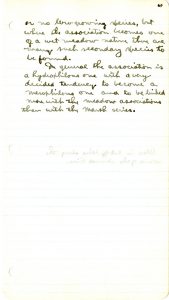 or no low-growing species, but
where the association becomes one
of a wet meadow nature there are
many such secondary species to
be found.
In general the association is
a hydrophilous one with a very
decided tendency to become a
mesophilous one and to be linked
more with the meadow associations
than with the marsh series.